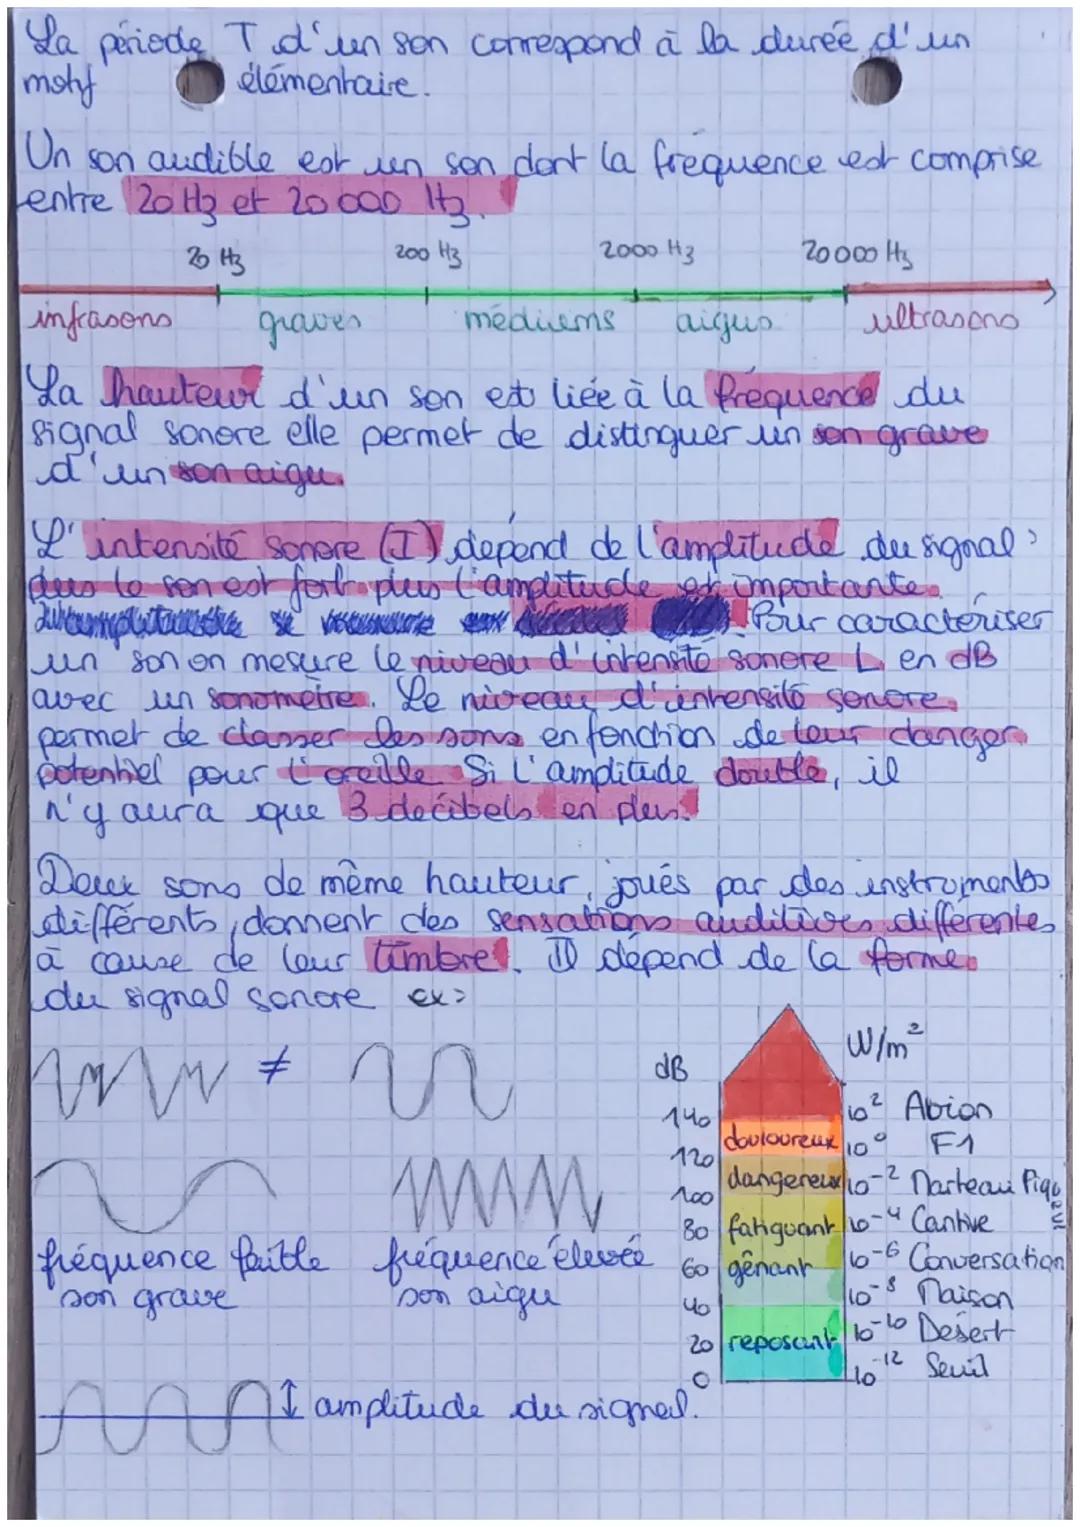 La période T d'un son correspond à la durée d'un
motif élémentaire.
Un son audible est un son dont la fréquence est comprise
entre 20 Hz et 20 000 Hz.
20 Hz 200 Hz 2000 Hz 20 000 Hz
infrasons graves médiums aigus ultrasons
La hauteur d'un son est liée à la fréquence du
signal sonore elle permet de distinguer un son grave
d'un son aigu.
L'intensité sonore (I) dépend de l'amplitude du signal :
plus le son est fort plus l'amplitude est importante.
Pour caractériser
un son on mesure le niveau d'intensité sonore L en dB
avec un sonomètre. Le niveau d'intensité sonore
permet de classer les sons en fonction de leur danger
potentiel pour l'oreille. Si l'amplitude double, il
n'y aura que 3 décibels en plus.
Deux sons de même hauteur, joués par des instruments
différents, donnent des sensations auditives différentes
à cause de leur timbre. Il dépend de la forme
du signal sonore ex :
≠
fréquence faible
son grave
fréquence élevée
son aigu
amplitude du signal.
dB W/m²
140 10² Avion
douloureux
120 10⁰ F1
dangereux
100 10⁻² Marteau Piqueur
80 fatiguant 10⁻⁴ Cantine
60 gênant 10⁻⁶ Conversation
40 10⁻⁸ Maison
20 reposant 10⁻¹⁰ Désert
0 10⁻¹² Seuil